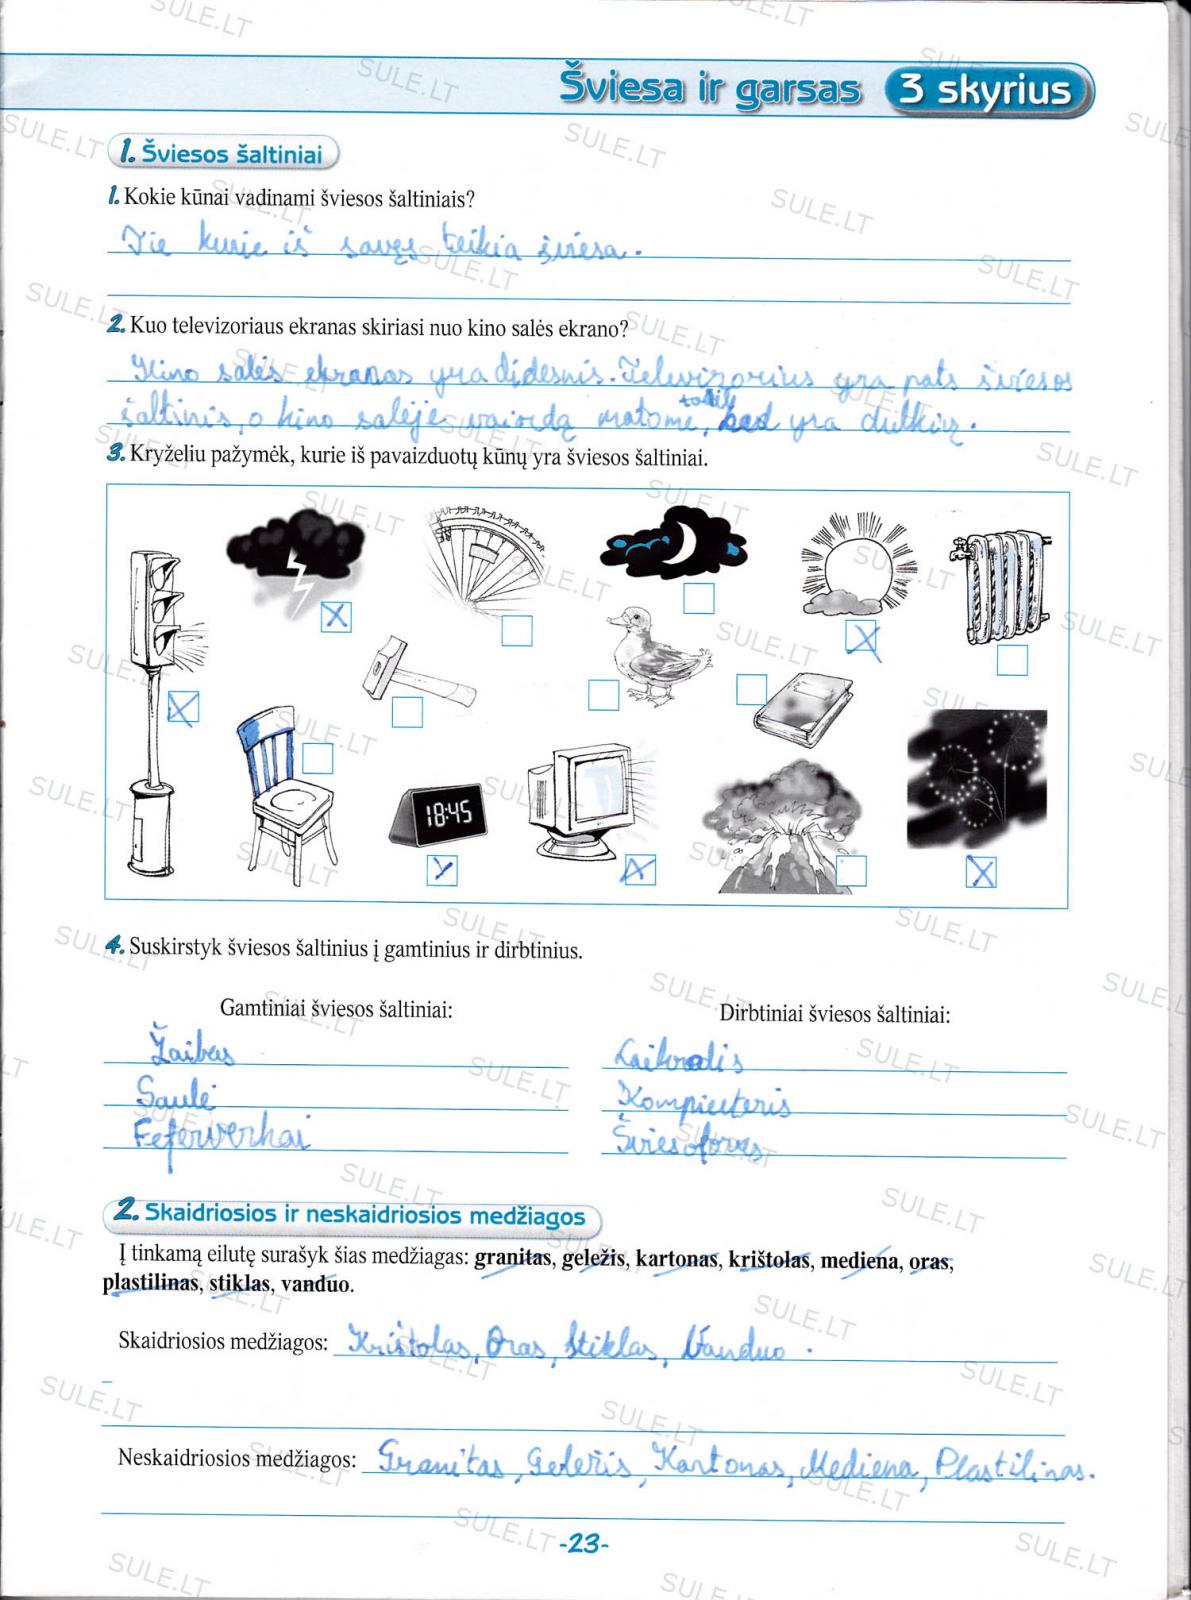 Šviesa ir garsas 3 skyrius
1. Šviesos šaltiniai
1. Kokie kūnai vadinami šviesos šaltiniais?
Tie kurie iš savęs teikia šviesa.
2. Kuo televizoriaus ekranas skiriasi nuo kino salės ekrano?
Kino salės ekranas yra didesnis. Televizorius yra pats šviesos
šaltinis, o kino salėje vaizdą matome, todėl kad yra dulkių.
3. Kryželiu pažymėk, kurie iš pavaizduotų kūnų yra šviesos šaltiniai.
18:45
4. Suskirstyk šviesos šaltinius į gamtinius ir dirbtinius.
Gamtiniai šviesos šaltiniai: Dirbtiniai šviesos šaltiniai:
Žaibas Laikrodis
Saulė Kompiuteris
Feferverkai Šviesoforas
2. Skaidriosios ir neskaidriosios medžiagos
Į tinkamą eilutę surašyk šias medžiagas: granitas, geležis, kartonas, krištolas, mediena, oras,
plastilinas, stiklas, vanduo.
Skaidriosios medžiagos: Krištolas, Oras, Stiklas, Vanduo.
Neskaidriosios medžiagos: Granitas, Geležis, Kartonas, Mediena, Plastilinas.
-23-
SULE.LT